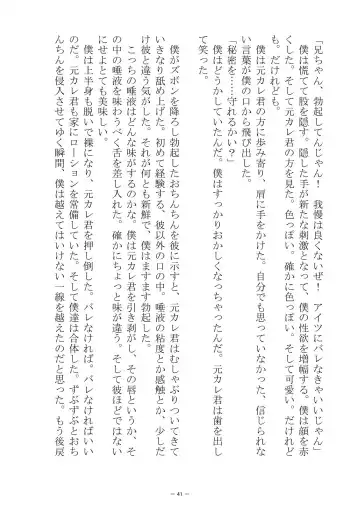 「兄ちゃん、勃起してんじゃん！　我慢は良くないぜ！　アイツにバレなきゃいいじゃん」
　僕は慌てて股を隠す。隠した手が新たな刺激となって、僕の性欲を増幅する。僕は顔を赤
くした。そして元カレ君の方を見た。色っぽい。確かに色っぽい。そして可愛い。だけれど
も。だけれども。
　僕は元カレ君の方に歩み寄り、肩に手をかけた。自分でも思っていなかった、信じられな
い言葉が僕の口から飛び出した。
「秘密を……守れるかい？」
　僕はどうかしていたんだ。僕はすっかりおかしくなっちゃったんだ。元カレ君は歯を出し
て笑った。
　僕がズボンを降ろし勃起したおちんちんを彼に示すと、元カレ君はむしゃぶりついてきて
いきなり舐め上げた。初めて経験する、彼以外の口の中。唾液の粘度とか感触とか、少しだ
け彼と違う気がした。それが何とも新鮮で、僕はますます勃起した。
　こっちの唾液はどんな味がするのかな。僕は元カレ君を引き剥がし、その唇というか、そ
の中の唾液を味わうべく舌を差し入れた。確かにちょっと味が違う。そして彼ほどではない
にせよとても美味しい。
　僕は上半身も脱いで裸になり、元カレ君を押し倒した。バレなければ。バレなければいい
のだ。元カレ君も家にローションを常備していた。そして僕達は合体した。ずぶずぶとおち
んちんを侵入させてゆく瞬間、僕は越えてはいけない一線を越えたのだと思った。もう後戻
－41－